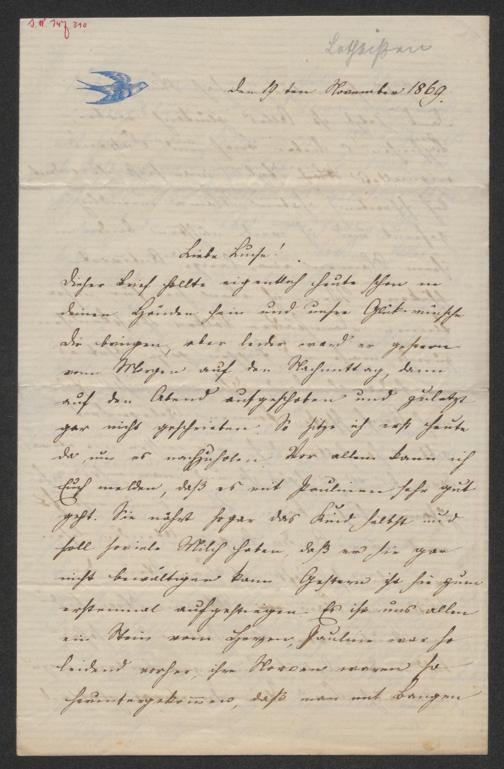 Lotheißen
den 19ten November 1869.
Liebe Luise!
Dieser Brief sollte eigentlich heute schon in
deinen Händen sein und unsre Glükwünsche
dir bringen, aber leider ward er gestern
vom Morgen auf den Nachmittag, dann
auf den Abend aufgeschoben und zuletzt
gar nicht geschrieben. So sitze ich erst heute
da, um es nachzuholen. Vor allem kann ich
Euch melden, daß es mit Paulinen sehr gut
geht. Sie nährt sogar das Kind selbst und
soll soviele Milch haben, daß er sie gar
nicht bewältigen kann. Gestern ist sie zum
erstenmal aufgestiegen. Es ist uns allen
ein Stein vom Herzen, Pauline war so
leidend vorher, ihre Nerven waren so
heruntergekommen, daß man mit Bangen